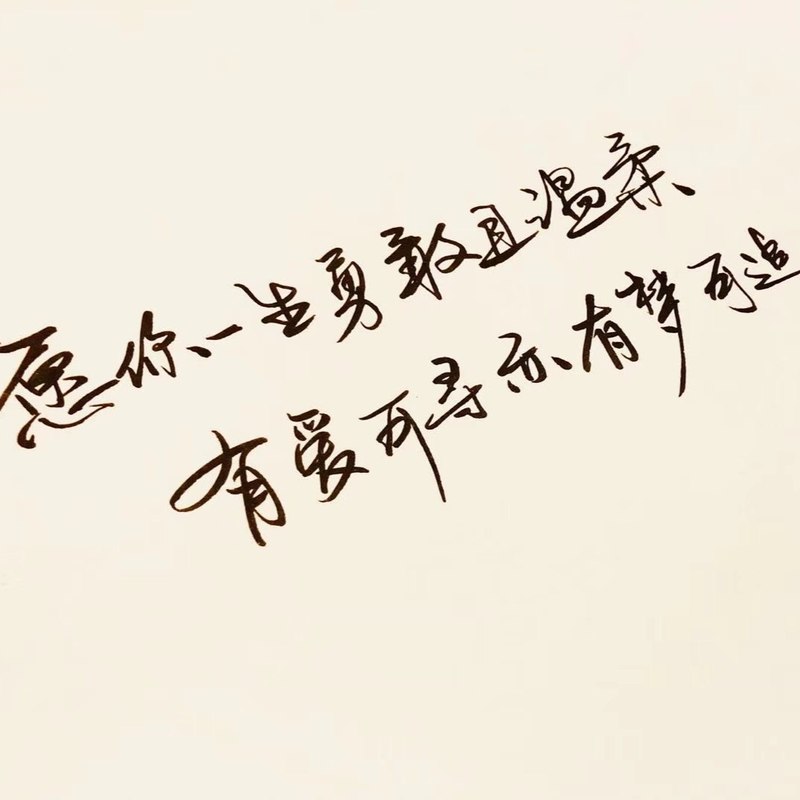 愿你一生勇敢且温柔
有爱可寻亦有梦可追